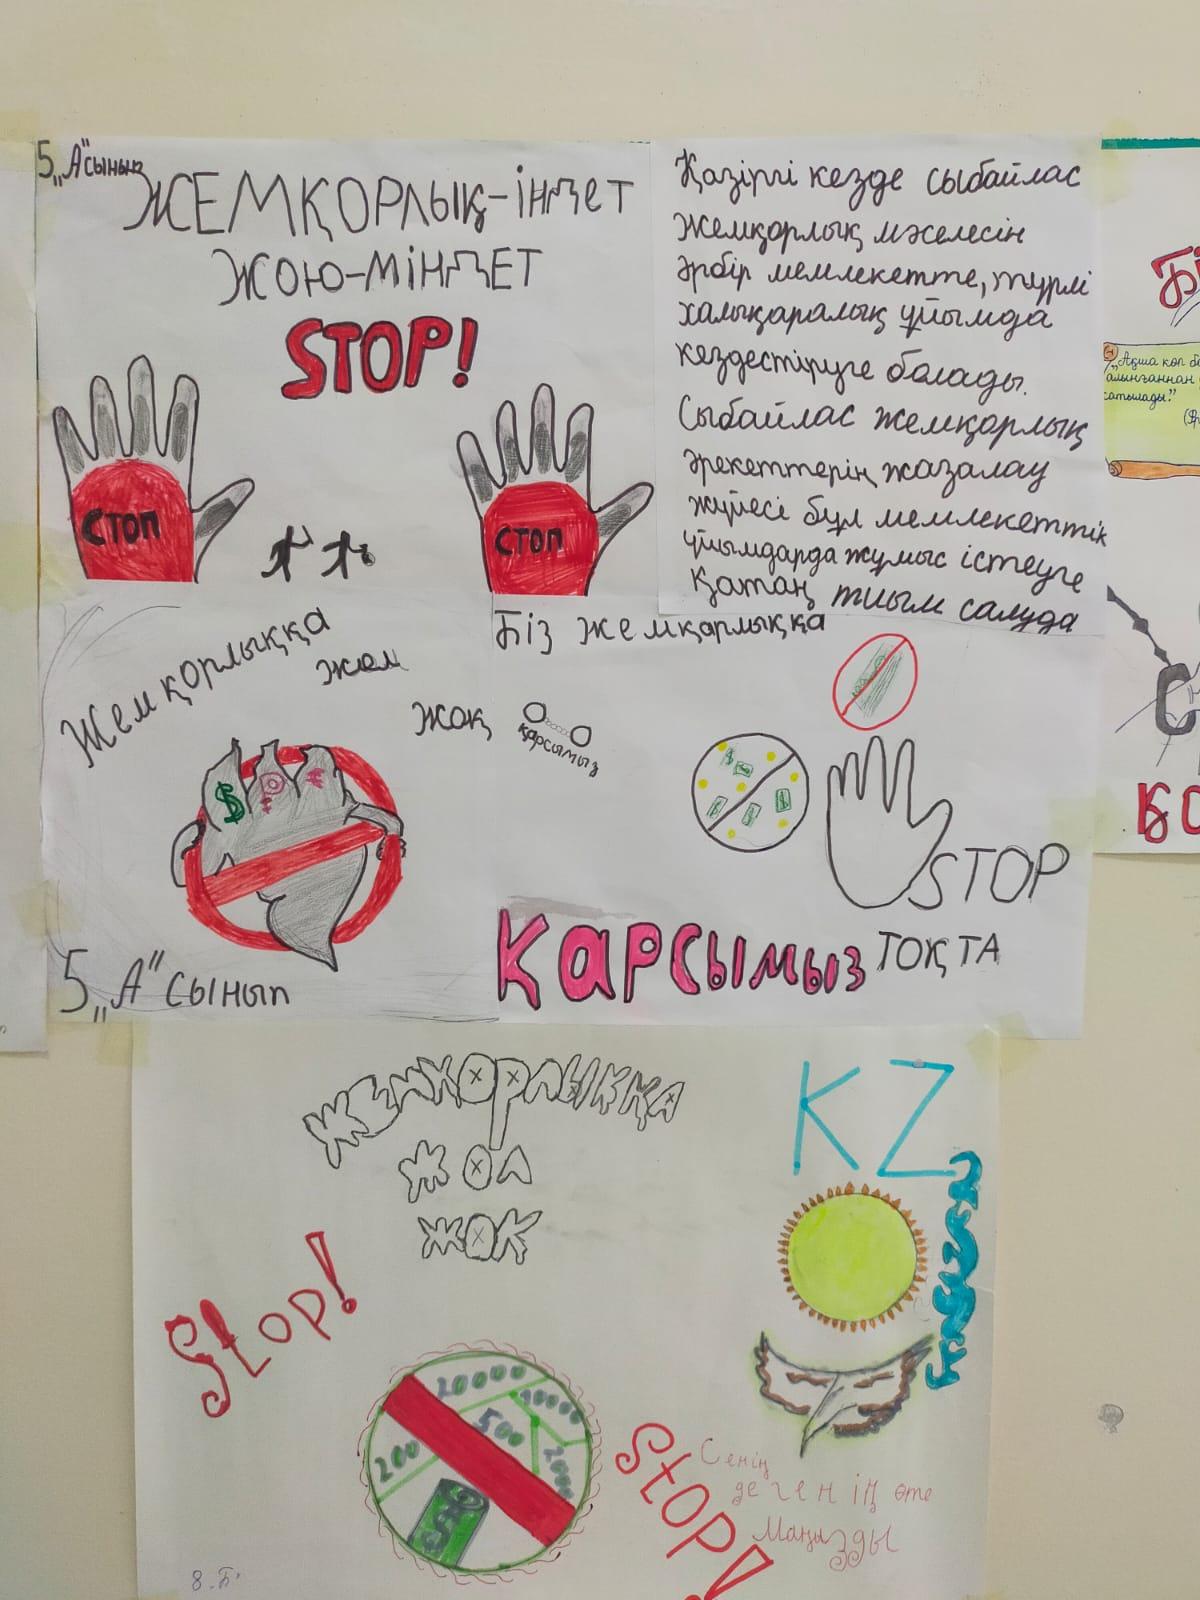 5 „А" сынып
ЖЕМҚОРЛЫҚ-ІНДЕТ
ЖОЮ-МІНДЕТ
STOP!
СТОП
СТОП
Қазіргі кезде сыбайлас
жемқорлық мәселесін
әрбір мемлекетте, түрлі
халықаралық ұйымда
кездестіруге болады.
Сыбайлас жемқорлық
әрекеттерің жазалау
жүйесі бұл мемлекеттік
ұйымдарда жұмыс істеуге
қатаң тиым салуда
Жемқорлыққа
жол
жоқ
$
₽
5 „А" сынып
Біз жемқорлыққа
қарсымыз
STOP
ТОҚТА
ҚАРСЫМЫЗ
„Ақша көп бо
алынғаннан
сатылады."
Бі
ҚО
ЖЕМҚОРЛЫҚҚА
ЖОЛ
ЖОК
KZ
Stop!
20000
10000
500
200
2000
Stop!
Сенің
дегенің өте
маңызды
8 „Б"